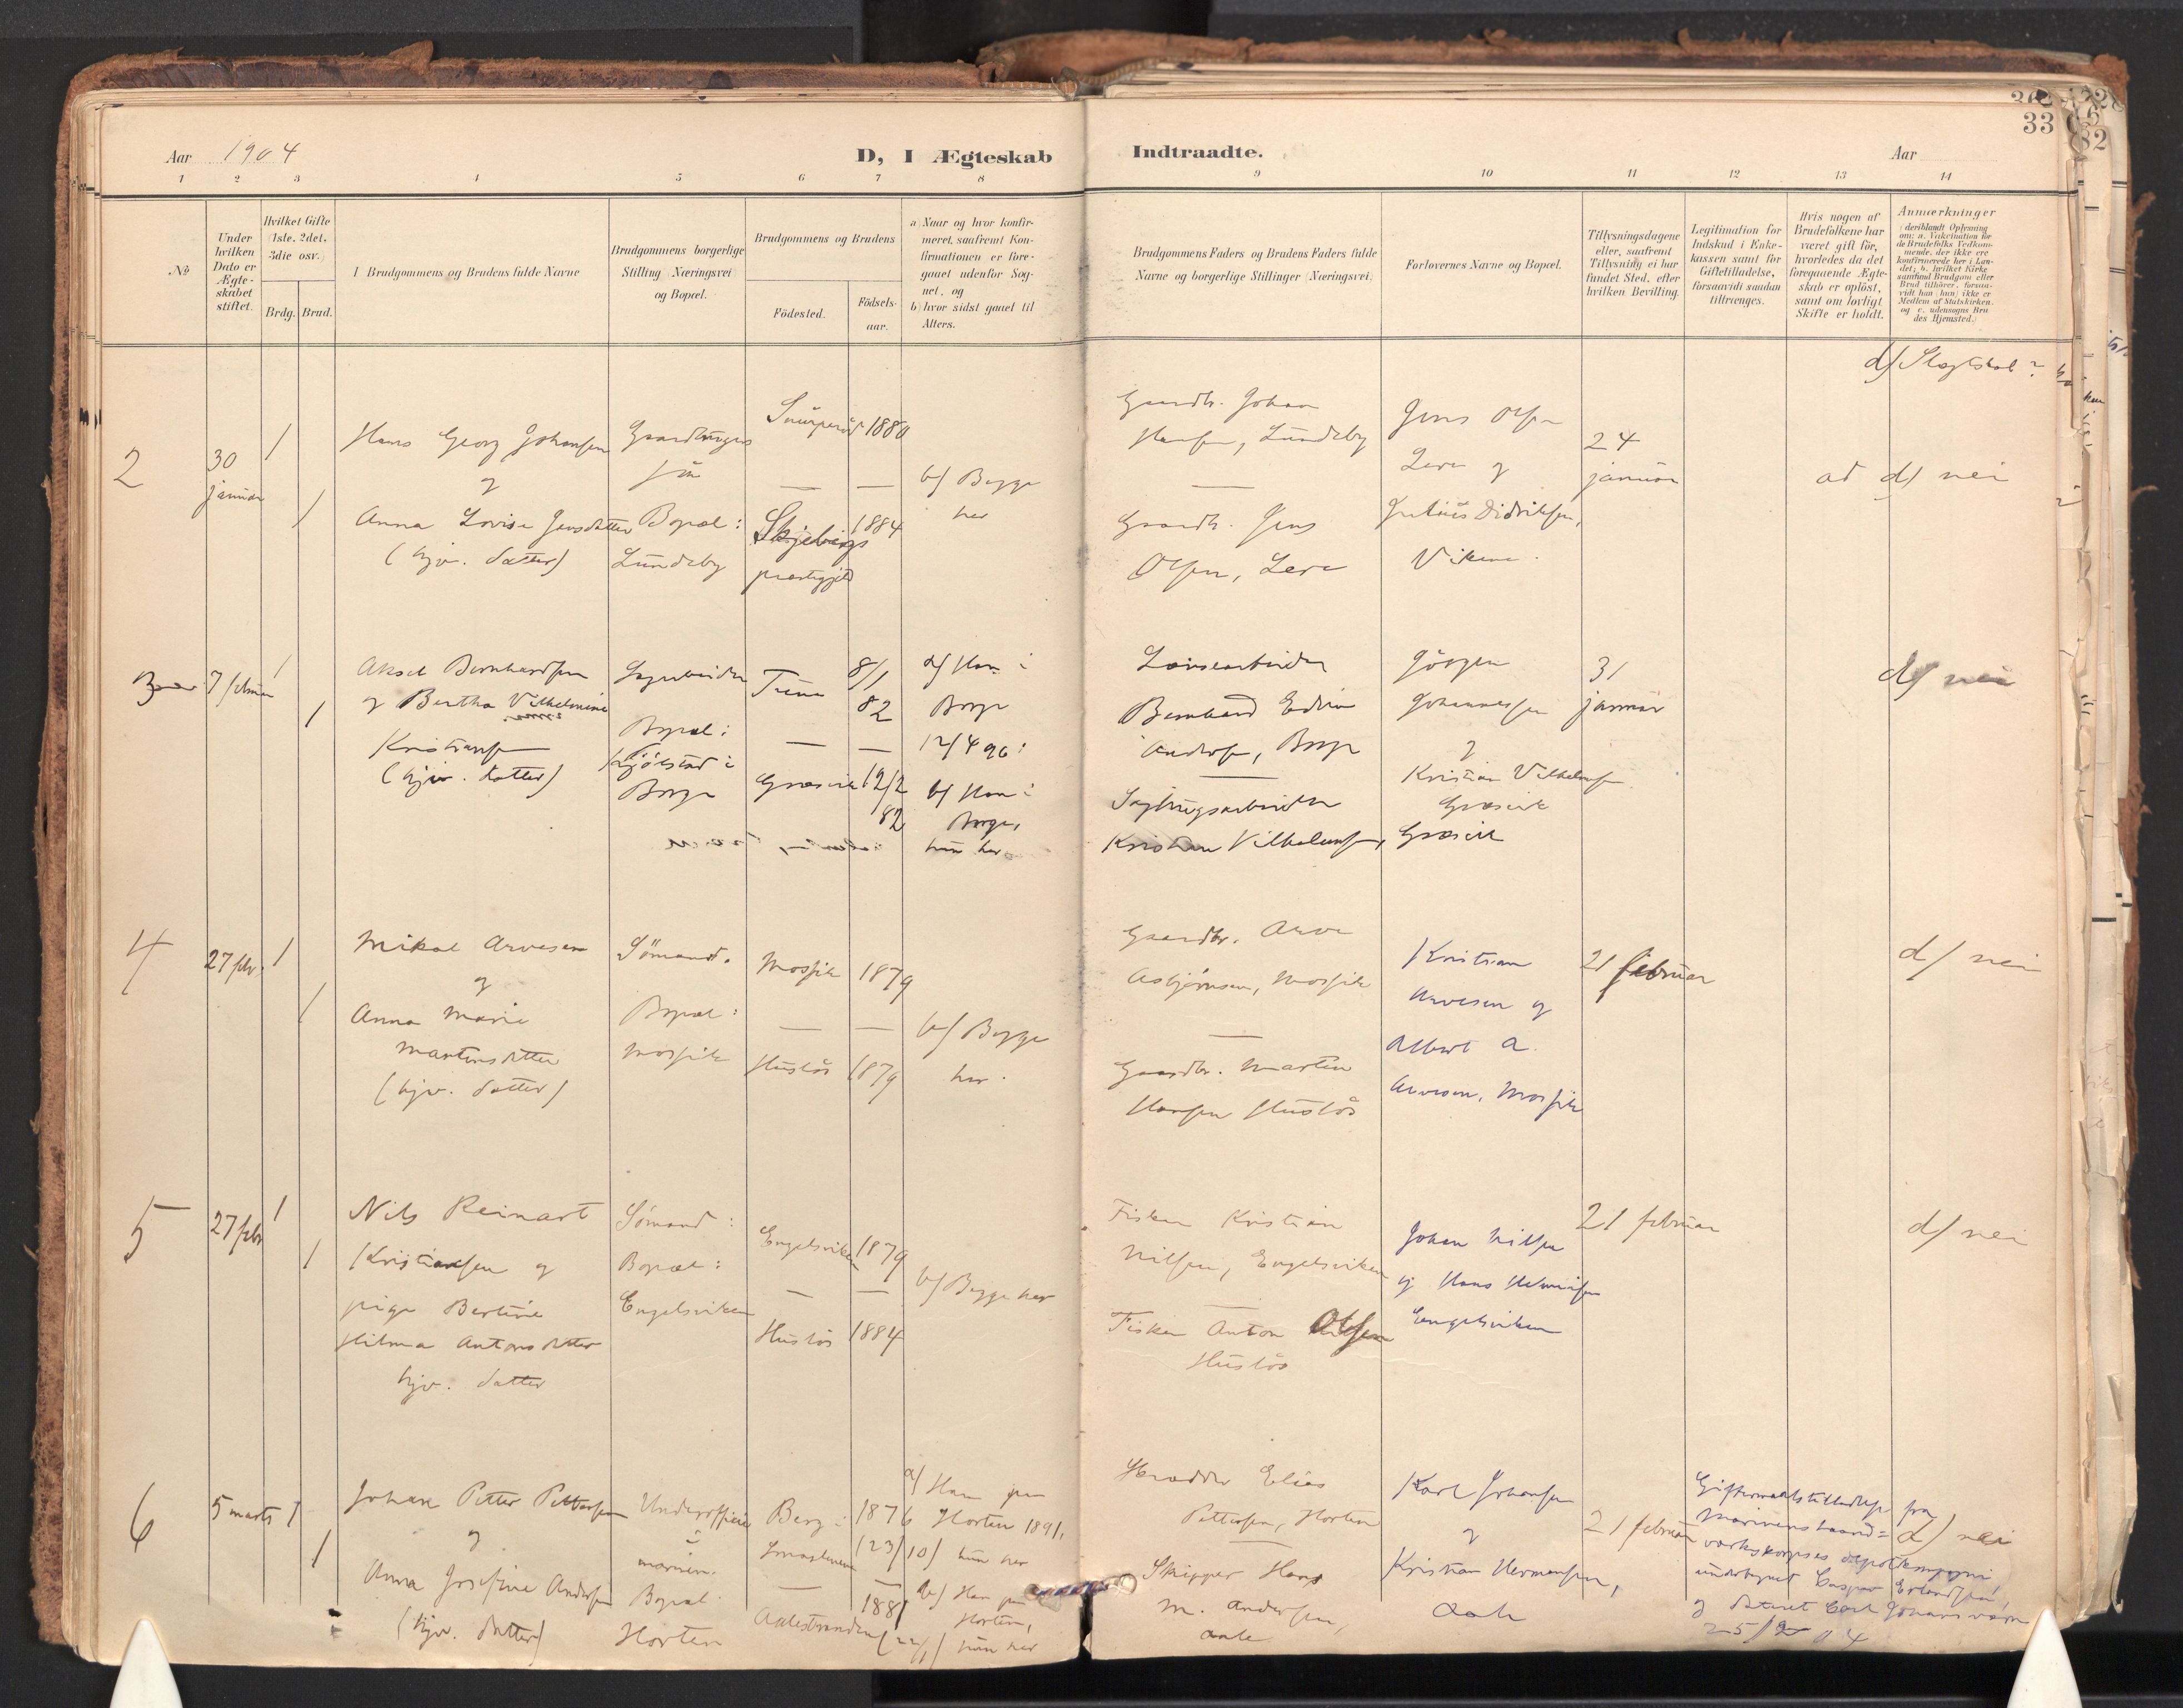 Aar 1904
D, I Ægteskab
Indtraadte.
Aar
33
1 2 3 4 5 6 7 8 9 10 11 12 13 14
No
Under hvilken Dato er Ægteskabet stiftet.
Hvilket Gifte (1ste, 2det, 3die osv.)
Brdg. Brud.
Brudgommens og Brudens fulde Navne
Brudgommens borgerlige Stilling (Næringsvei) og Bopæl.
Brudgommens og Brudens
Födested.
Födsels-aar.
a) Naar og hvor konfir-
meret, saafremt Kon-
firmationen er fore-
gaaet udenfor Sog-
net, og
b) hvor sidst gaaet til
Alters.
Brudgommens Faders og Brudens Faders fulde
Navne og borgerlige Stillinger (Næringsvei).
Forlovernes Navne og Bopæl.
Tillysningsdagene
eller, saafremt
Tillysning ei har
fundet Sted, efter
hvilken Bevilling.
Legitimation for
Indskud i Enke-
kassen samt for
Giftetilladelse,
forsaavidt saadan
tiltrænges.
Hvis nogen af
Brudefolkene har
været gift för,
hvorledes da det
foregaaende Ægte-
skab er oplöst,
samt om lovligt
Skifte er holdt.
Anmærkninger
(deriblandt Oplysning
om: a. Vakcination for
de Brudefolks Vedkom-
mende, der ikke ere
konfirmerede her i Lan-
det; b. hvilket Kirke-
samfund Brudgom eller
Brud tilhörer, forsaa-
vidt han (hun) ikke er
Medlem af Statskirken,
og c. udensogns Bru-
des Hjemsted.)
d/ Slegtskab?
2
30 januar
1
1
Hans Georg Johansen
og
Anna Lovise Jensdatter
(hjv. datter)
Gaardbrugers
sön
Bopæl:
Lundeby
1880
Skjebergs
præstegjeld
1884
b/ Begge
her
Gaardbr. Johan
Hansen, Lundeby
Gaardb. Jens
Olsen, Lere
Jens Olsen
Lere og
Julius Didriksen,
Vikene.
24
januar
ad d/ nei
3
7 februar
1
1
Aksel Bernhardsen
og Bertha Vilhelmine
Kristiansen
(hjv. datter)
Bopæl:
Kjölstad i
Borge
Tune
8/1
82
Græsvik
12/2
82
a/ Han i
Borge
12/4 96:
b/ Han i
Borge,
hun her
Bernhard Edvin
Andersen, Borge
Sagbrugsarbeider
Kristian Vilhelmsen, Græsvik
Jörgen
Johannessen
og
Kristian Vilhelmsen
Græsvik
31
januar
d/ nei
4
27 febr.
1
1
Mikal Arvesen
og
Anna Marie
Martinsdatter
(hjv. datter)
Sömand.
Bopæl:
Mossik
Mossik 1879
Huslös 1879
b/ Begge
her.
Gaardbr. Arve
Asbjörnsen, Mossik
Gaardbr. Martin
Hansen Huslös
Kristian
Arvesen og
Albert A.
Arvesen, Mossik
21 februar
d/ nei
5
27 febr
1
1
Nils Reinart
Kristiansen og
pige Bertine
Hilma Antonsdatter
hjv. datter
Sömand:
Bopæl:
Engelsviken
Engelsviken 1879
Huslös 1884
b/ Begge her
Fisker Kristian
Nilsen, Engelsviken
Fisker Anton Olsen
Huslös
Johan Nilsen
og Hans
Engelsviken
21 februar
d/ nei
6
5 marts
1
1
Johan Petter Pettersen
og
Anna Josefine Andersen
(hjv. datter)
Underofficer
i
marinen.
Bopæl
Horten
Berg i
1876
(23/10)
Aalestranden
1881
(22/1)
a/ Han paa
Horten 1891,
hun her
b/ Han paa
Horten,
hun her
Skrædder Elias
Pettersen, Horten
Skipper Hans
M. Andersen,
Aale
Karl Johansen
og
Kristian Hermansen,
Aale
21 februar
Giftermaalstilladelse fra
Marinens haand=
værkskorpses depotkompagni,
undertegnet Caspar Erlandsen,
og dateret Carl Johans værn
25/2 04
d/ nei